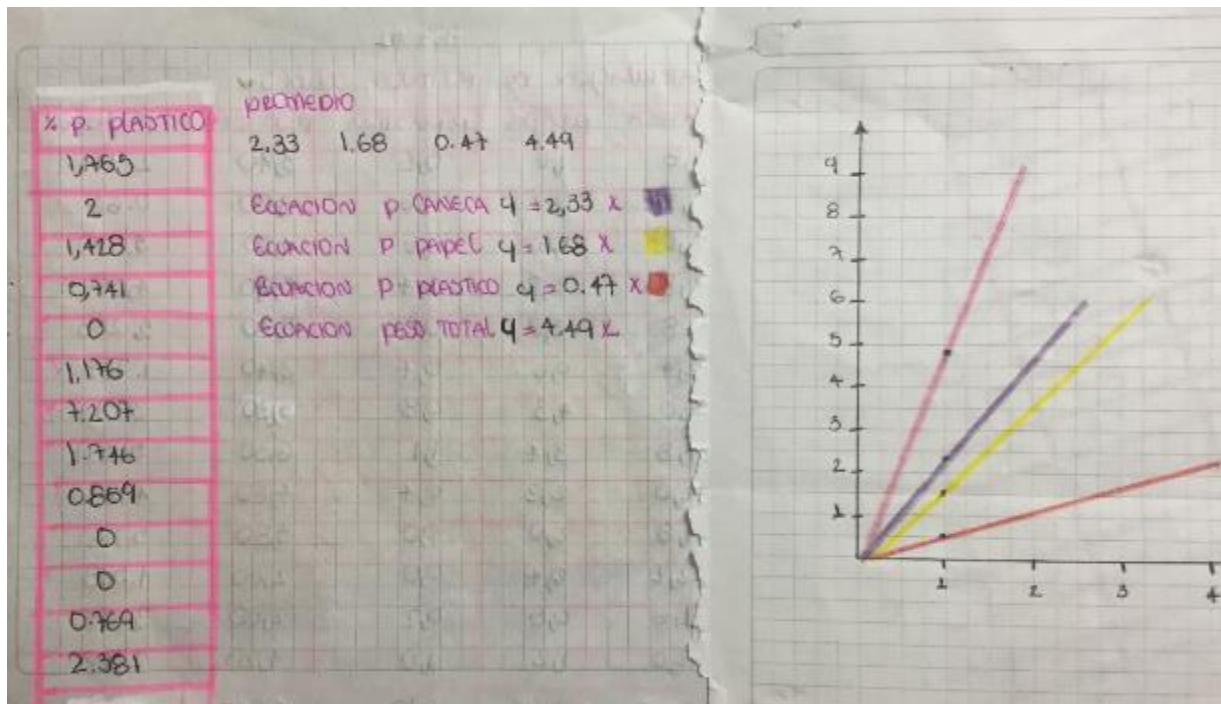 % P. PLASTICO
1,765
2
1,428
0,741
0
1.176
7.207
1.746
0.869
0
0
0.769
2.381
PROMEDIO
2.33 1.68 0.47 4.49
ECUACION P. CANECA y = 2,33 x
ECUACION P PAPEL y = 1.68 x
ECUACION P PLASTICO y = 0.47 x
ECUACION PESO TOTAL y = 4.49 x
9
8
7
6
5
4
3
2
1
1 2 3 4